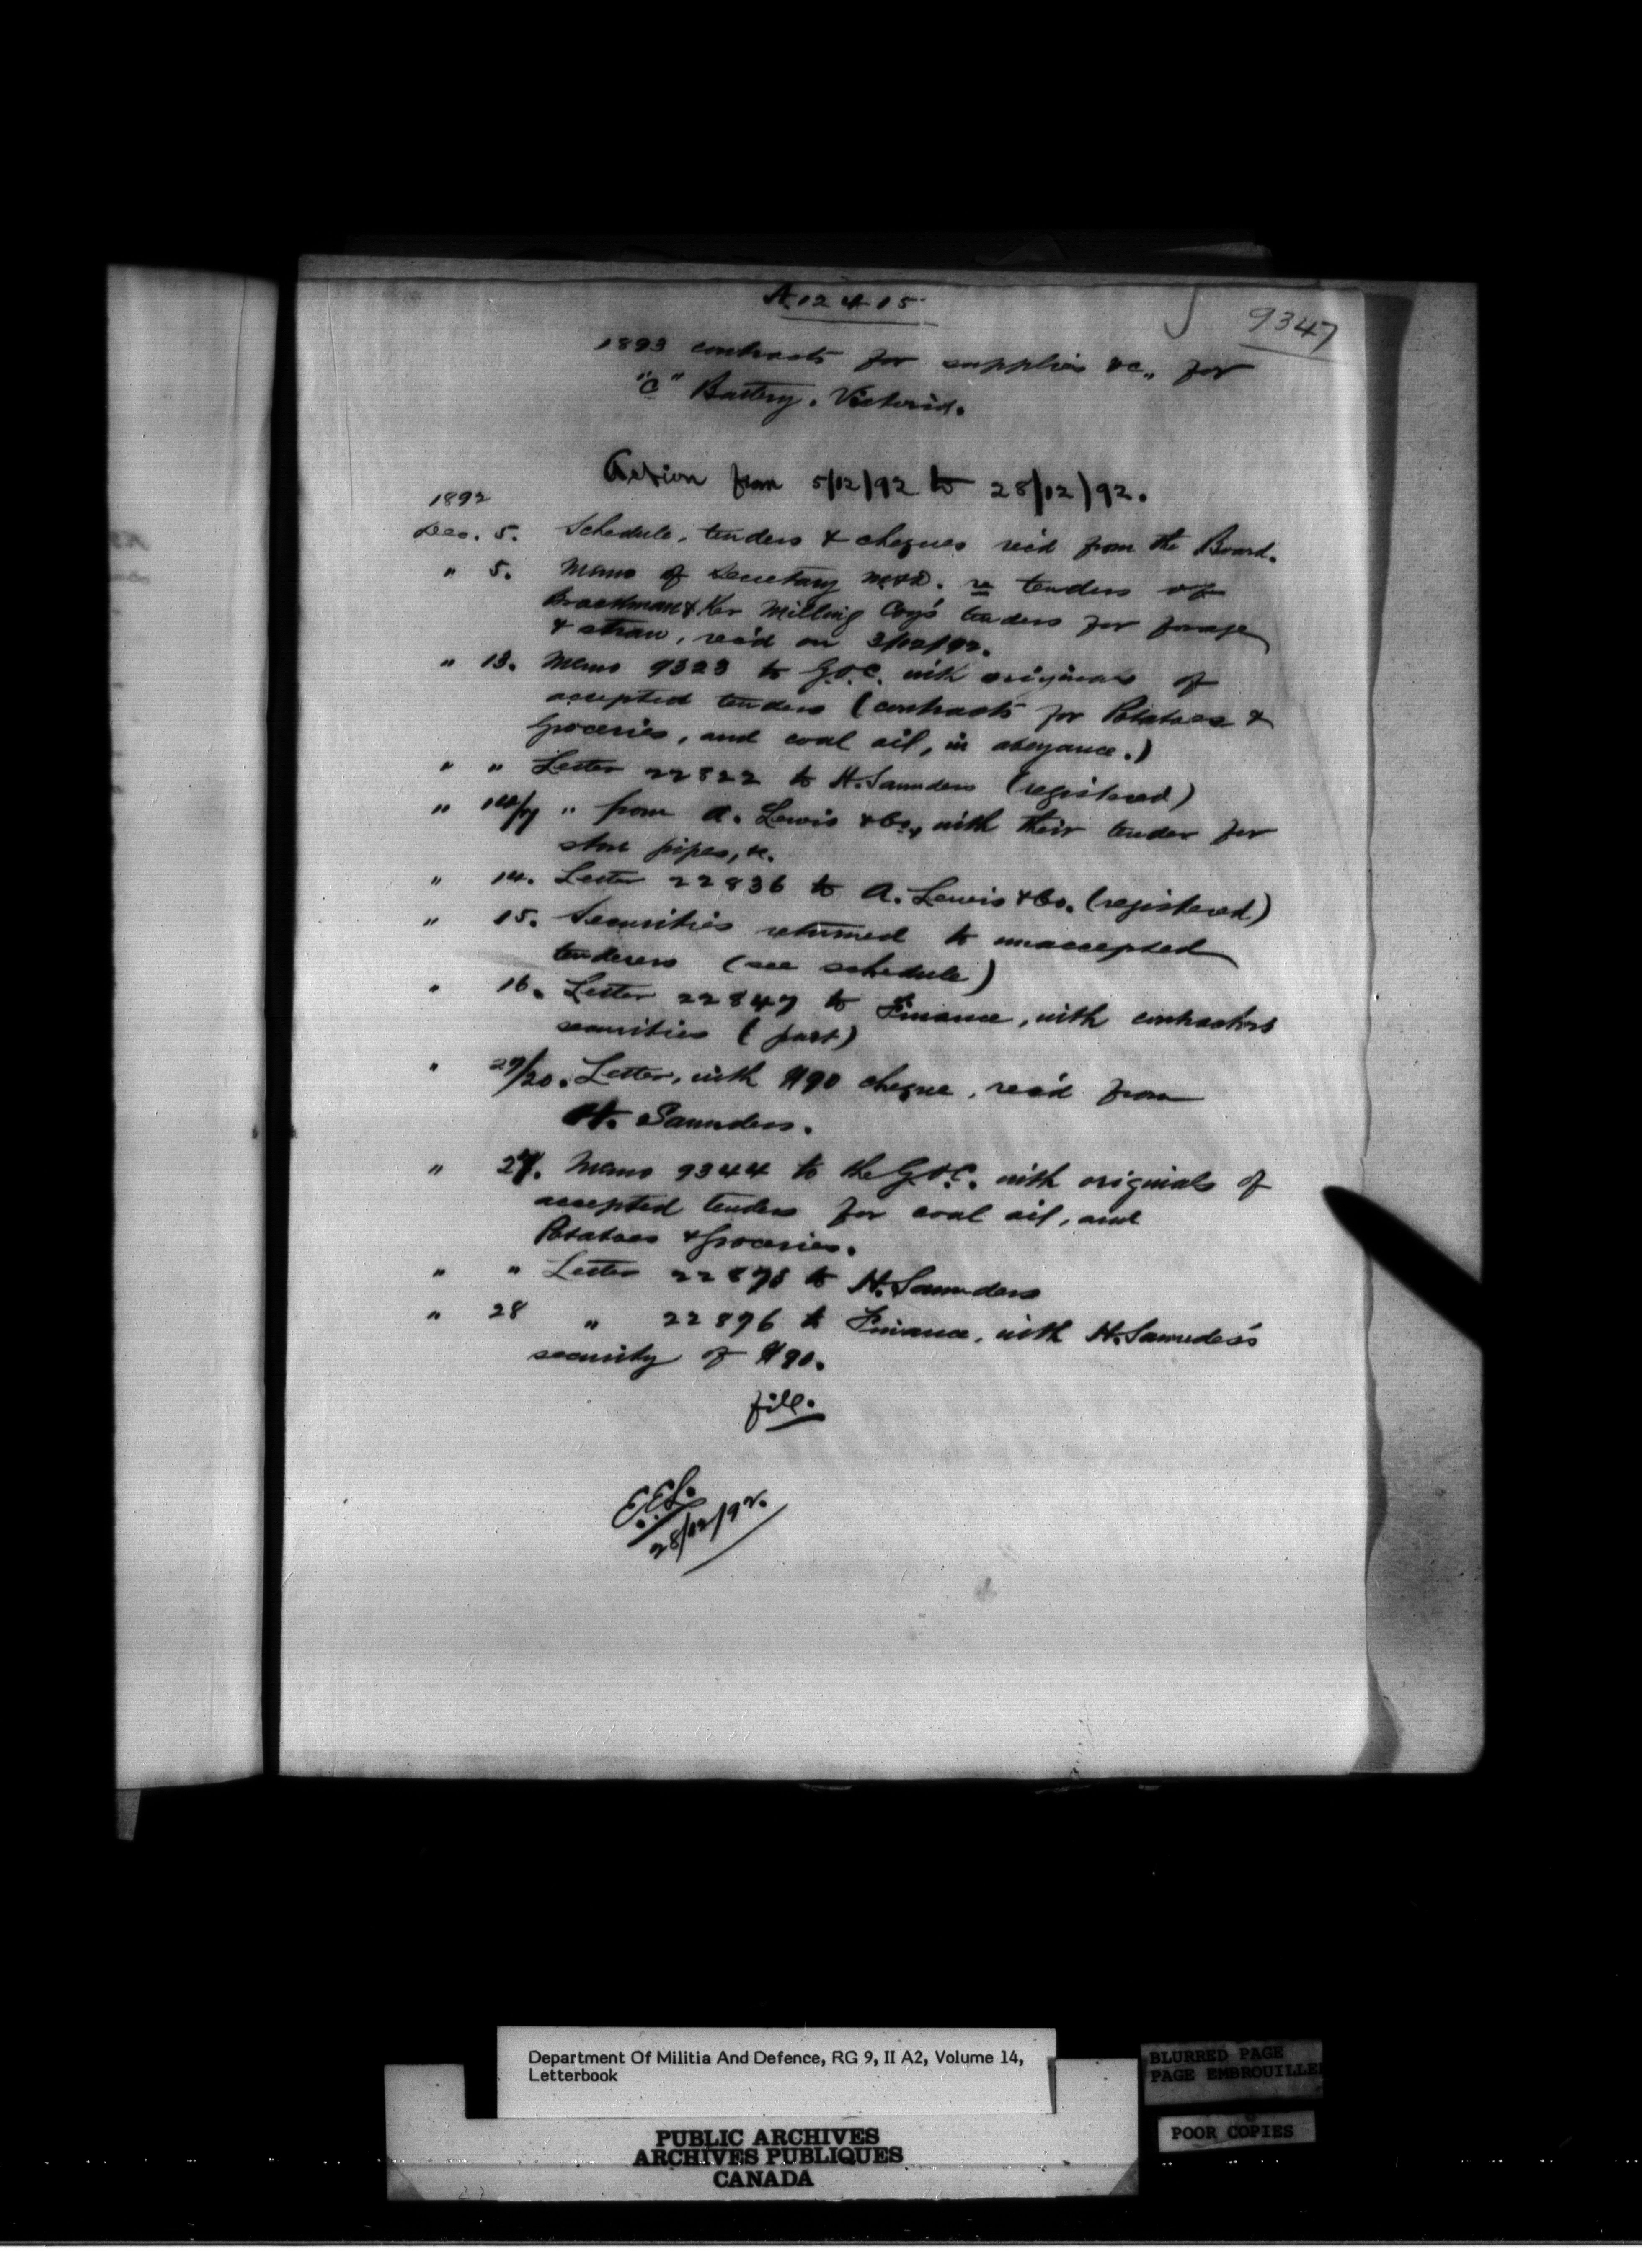 A.12415
9347
1893 contracts for supplies &c., for
"C" Battery. Victoria.
Action from 5/12/92 to 28/12/92.
1892
Dec. 5. Schedule, tenders & cheques rec'd from the Board.
" 5. Memo of Secretary M&D. re tenders of
Brackman & Ker Milling Coy's tenders for forage
& straw, rec'd on 3/12/92.
" 13. Memo 9323 to G.O.C. with originals of
accepted tenders (contracts for Potatoes &
Groceries, and coal oil, in abeyance.)
" " Letter 22822 to H. Saunders (registered)
" " from A. Lewis & Co., with their tender for
stove pipes, &c.
" 14. Letter 22836 to A. Lewis & Co. (registered)
" 15. Securities returned to unaccepted
tenderers (see schedule)
" 16. Letter 22847 to Finance, with contractors
securities (part)
" 27/20. Letter, with $90 cheque, rec'd from
H. Saunders.
" 27. Memo 9344 to the G.O.C. with originals of
accepted tenders for coal oil, and
Potatoes & Groceries.
" " Letter 22878 to H. Saunders
" 28 " 22896 to Finance, with H. Saunders's
security of $90.
file.
E.E.L.
28/12/92.
Department Of Militia And Defence, RG 9, II A2, Volume 14,
Letterbook
PUBLIC ARCHIVES
ARCHIVES PUBLIQUES
CANADA
BLURRED PAGE
PAGE EMBROUILLE
POOR COPIES